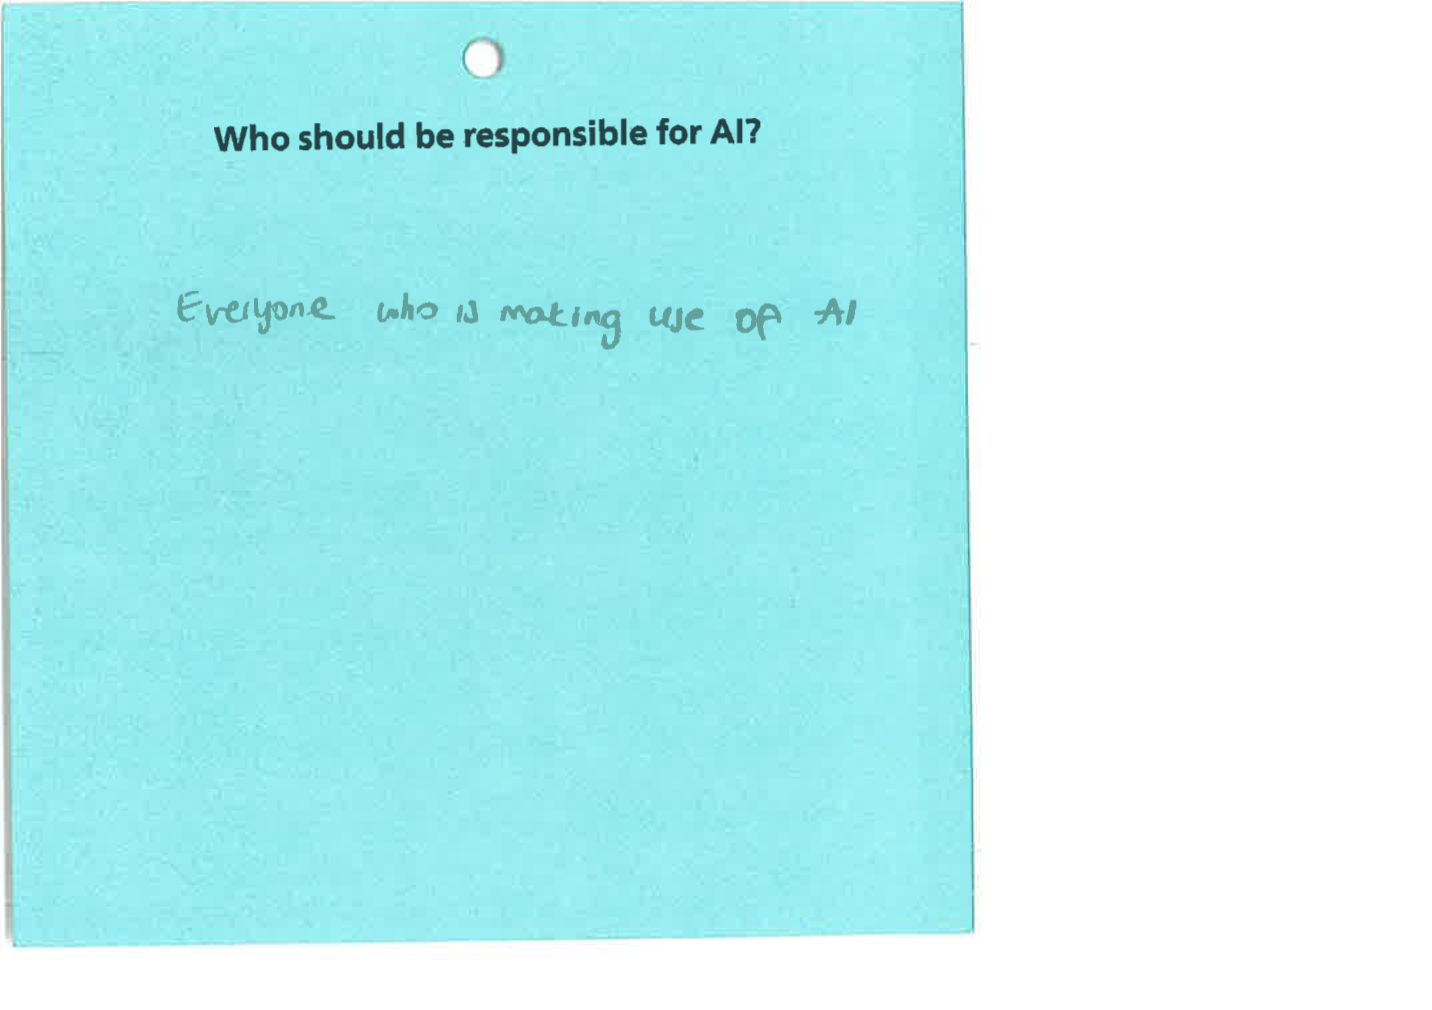 Who should be responsible for AI?
Everyone who is making use of AI